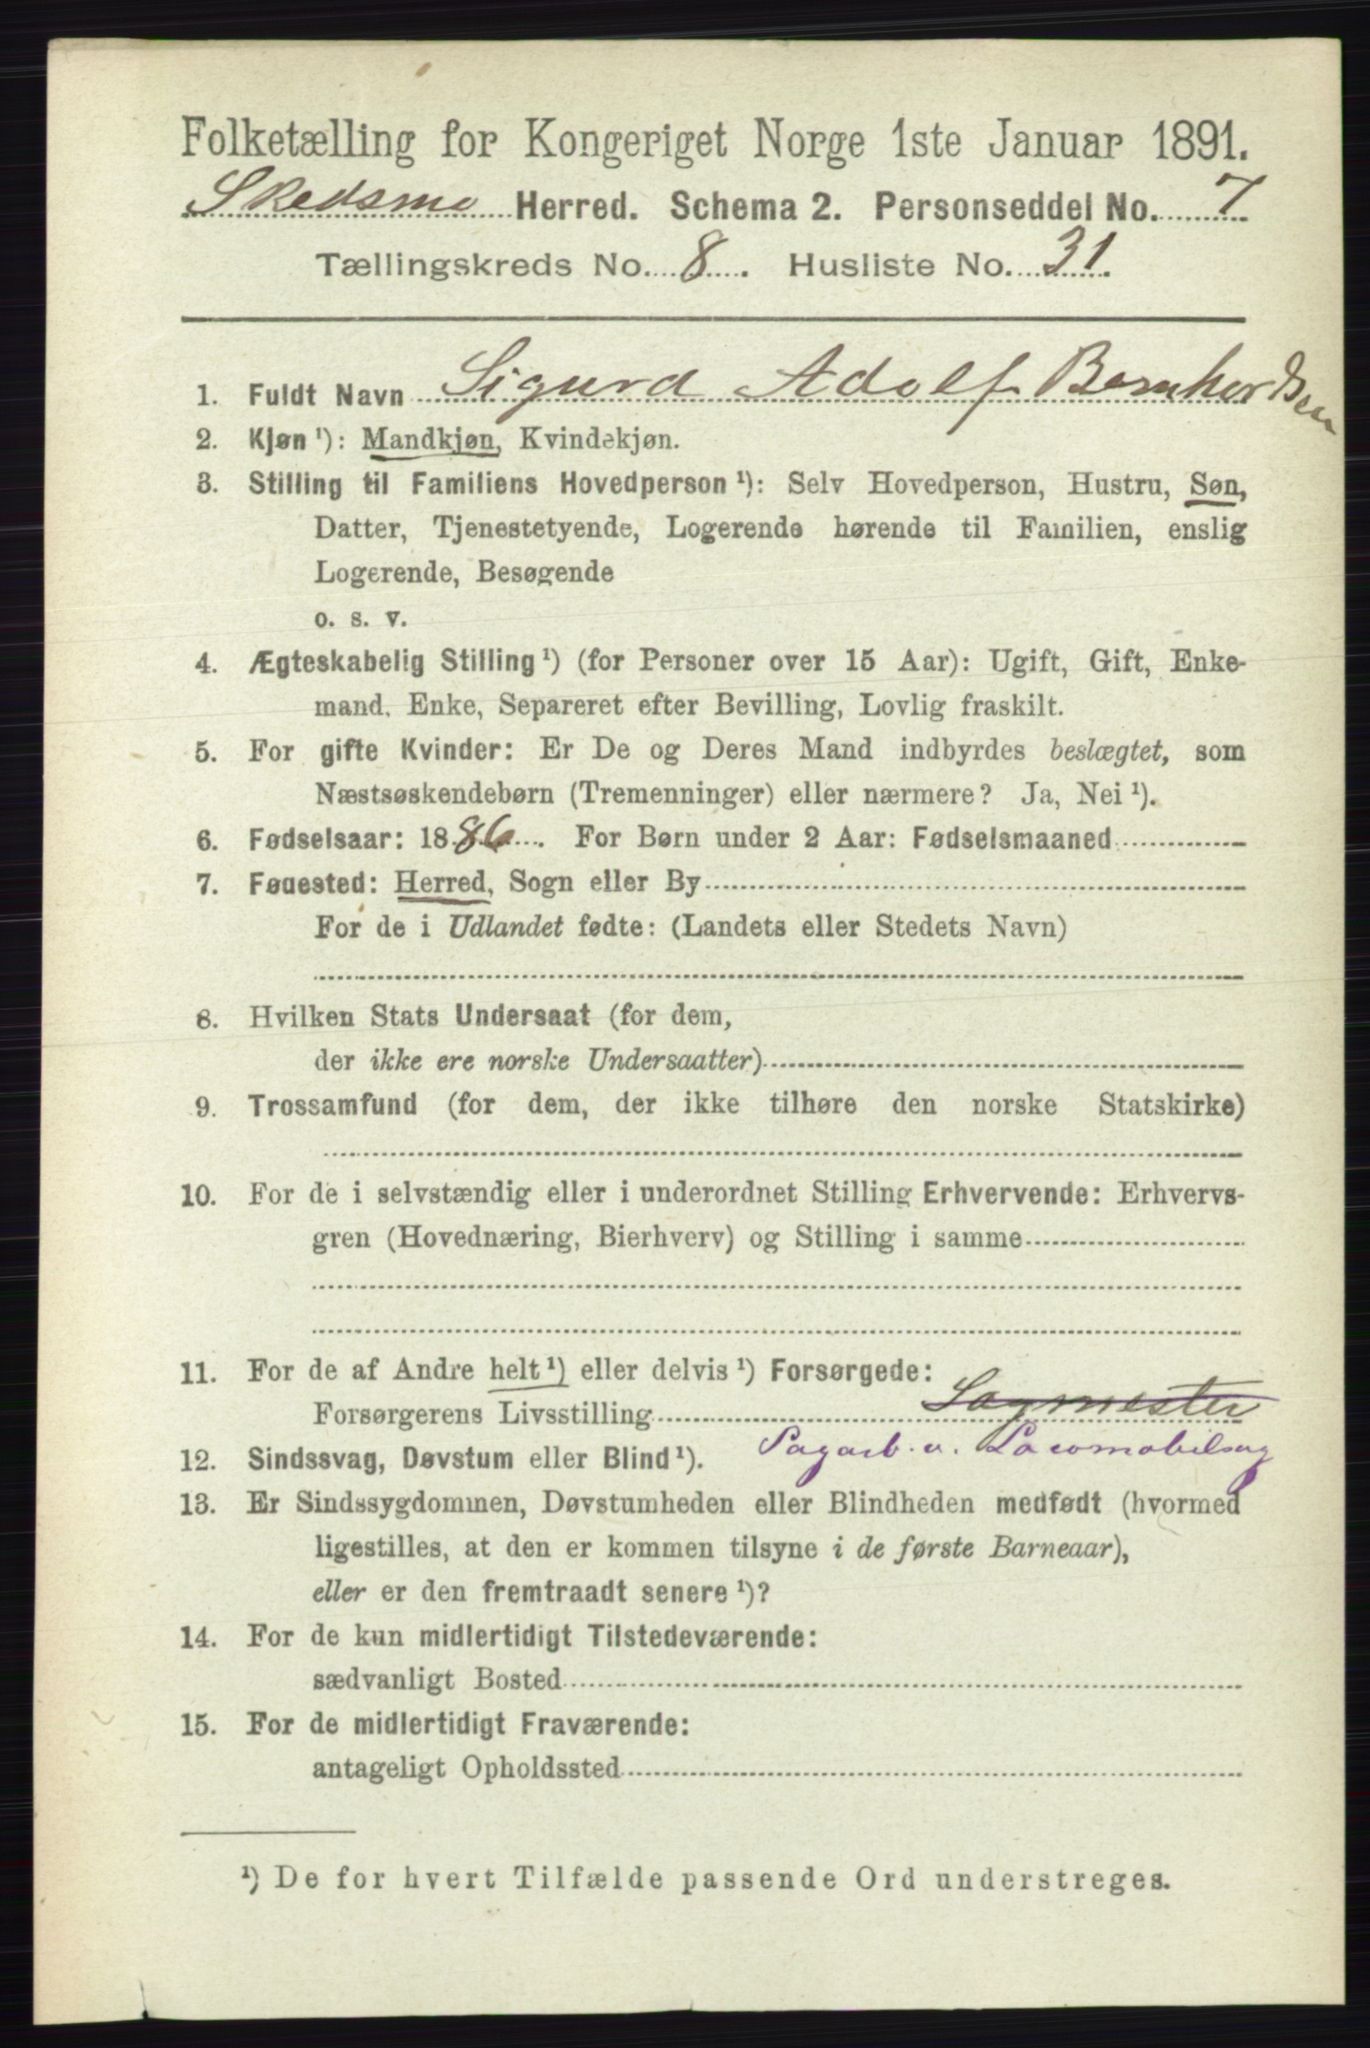 Folketælling for Kongeriget Norge 1ste Januar 1891.
Skedsmo Herred. Schema 2. Personseddel No. 7
Tællingskreds No. 8. Husliste No. 31.
1. Fuldt Navn Sigurd Adolf Bernhardsen
2. Kjøn ¹): Mandkjøn, Kvindekjøn.
3. Stilling til Familiens Hovedperson ¹): Selv Hovedperson, Hustru, Søn,
Datter, Tjenestetyende, Logerende hørende til Familien, enslig
Logerende, Besøgende
o. s. v.
4. Ægteskabelig Stilling ¹) (for Personer over 15 Aar): Ugift, Gift, Enke-
mand, Enke, Separeret efter Bevilling, Lovlig fraskilt.
5. For gifte Kvinder: Er De og Deres Mand indbyrdes beslægtet, som
Næstsøskendebørn (Tremenninger) eller nærmere? Ja, Nei ¹).
6. Fødselsaar: 1886. For Børn under 2 Aar: Fødselsmaaned
7. Fødested: Herred, Sogn eller By
For de i Udlandet fødte: (Landets eller Stedets Navn)
8. Hvilken Stats Undersaat (for dem,
der ikke ere norske Undersaatter)
9. Trossamfund (for dem, der ikke tilhøre den norske Statskirke)
10. For de i selvstændig eller i underordnet Stilling Erhvervende: Erhvervs-
gren (Hovednæring, Bierhverv) og Stilling i samme
11. For de af Andre helt ¹) eller delvis ¹) Forsørgede:
Forsørgerens Livsstilling Sagmester
Sagarb. v. Locomobilsag
12. Sindssvag, Døvstum eller Blind ¹).
13. Er Sindssygdommen, Døvstumheden eller Blindheden medfødt (hvormed
ligestilles, at den er kommen tilsyne i de første Barneaar),
eller er den fremtraadt senere ¹)?
14. For de kun midlertidigt Tilstedeværende:
sædvanligt Bosted
15. For de midlertidigt Fraværende:
antageligt Opholdssted
¹) De for hvert Tilfælde passende Ord understreges.